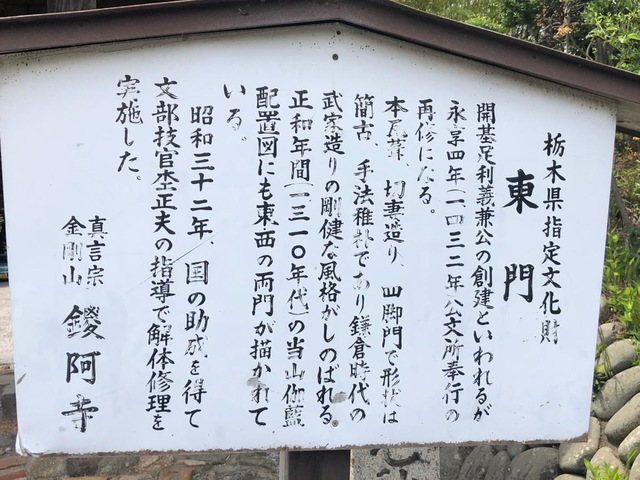 栃木県指定文化財
東門
開基足利義兼公の創建といわれるが
永享四年(一四三二年公文所奉行の
再修になる。
本瓦葺、切妻造り、四脚門で形状は
簡古、手法稚朴であり鎌倉時代の
武家造りの剛健な風格がしのばれる。
正和年間(一三一〇年代)の当山伽藍
配置図にも東西の両門が描かれて
いる。
昭和三十二年、国の助成を得て
文部技官杢正夫の指導で解体修理を
実施した。
真言宗
金剛山
鑁阿寺